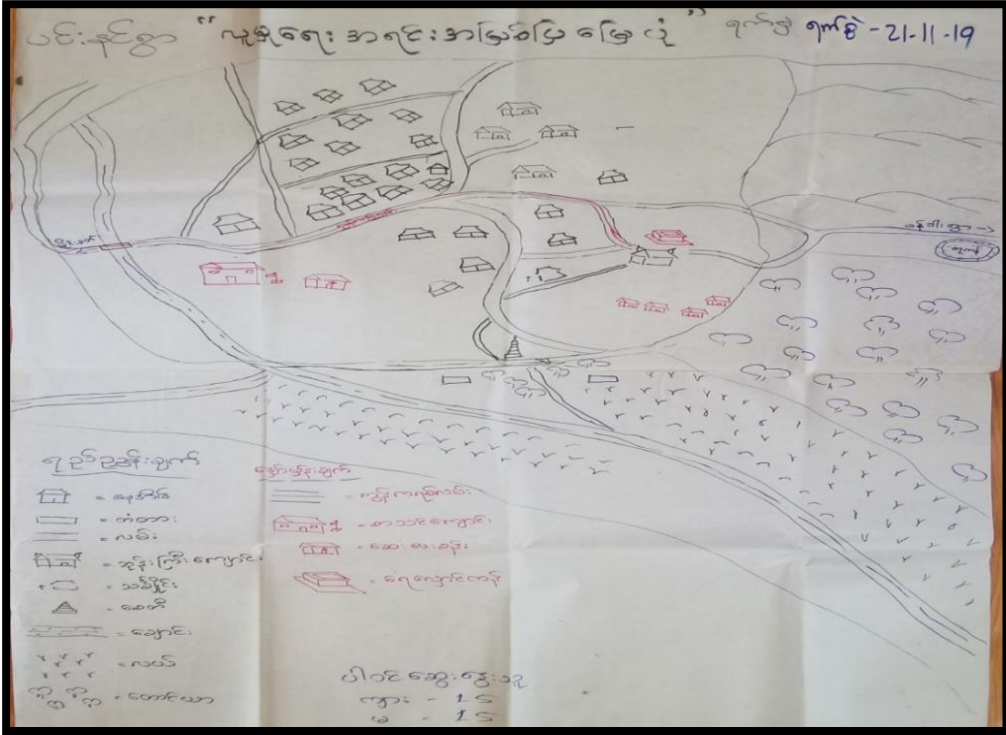 ပင်းနင်ရွာ "လူမှုရေး အရင်းအမြစ်ပြ မြေပုံ" ရက်စွဲ ရက်စွဲ - 21-11-19
ရည်ညွှန်းချက်
= နေအိမ်
= တံတား
= လမ်း
= ဘုန်းကြီးကျောင်း
= သင်္ချိုင်း
= စေတီ
= ချောင်း
= လယ်
= တောင်ယာ
မျှော်မှန်းချက်
= ကွန်ကရစ်လမ်း
= စာသင်ကျောင်း
= ဆေးပေးခန်း
= ရေလှောင်ကန်
ပါဝင်ဆွေးနွေးသူ
ကျား - 15
မ - 15